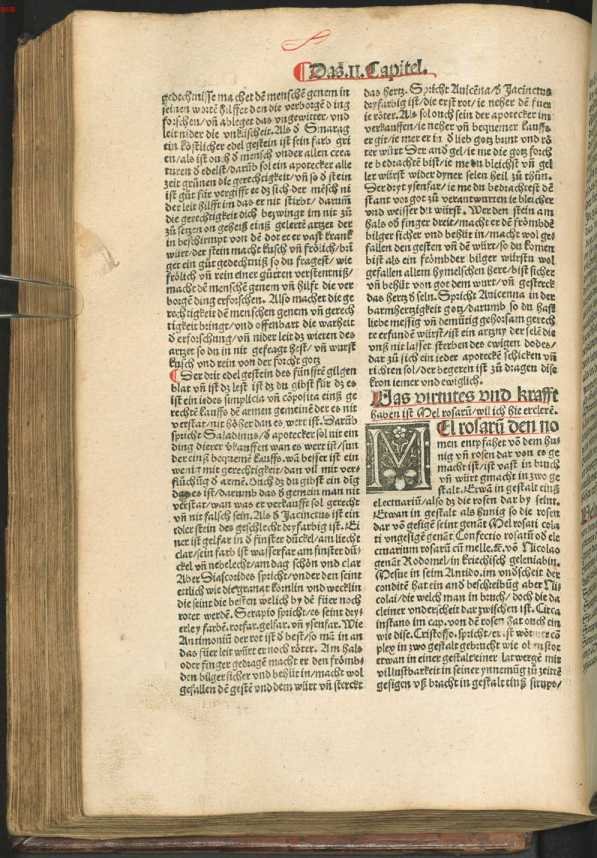 Das .II. Capitel.
gedechnisse machet dē menschē genem in
seinen wortē hilfft den die verborgē ding
forschen/ vñ ableget das vngewitter vnd
leit nider die vnküscheit. Als d Smaragt
ein köstlicher edel gestein ist sein farb grü
en/als ist ouch d mensch vnder allen crea
turen d edelst/darūb sol ein apotecker alle
zeit grünen die gerechtigkeit/vñ so d stein
ist gůt für vergifft er dz sich der mēsch
der leit hilfft im das er nit stirbt/ darum
die gerechtigkeit dich bezwingt im nit zů
zů setzen on geheiß einß gelertē artzet der
in beschirmpt von dē dot er er vast kranck
würt/der stein macht küsch vñ frölich/
get ein gůt gedechniß so du fragest/ wie
frölich vñ rein einer gůten verstentniß/
macht dē menschē genem vñ hilft die ver
borgē ding erforschen. Also machet die ge
rechtigkeit dē menschen genem vñ gerech
tigkeit bringt/vnd offenbart die warheit
d erforschung/vñ nider leit dz wieten des
artzet so du in nit gefragt hest/ vñ wurst
küsch vnd rein von der forcht gotz
¶Der drit edel gestein des fünffte gilgen
blat vñ ist dz lest ist dz du gibst für dz es
ist ein iedes simplicia vñ cōposita einß ge
rechtē kauffs dē armen gemeinē der es nit
verstat/nit höher dan es wert ist. Darūb
spricht Saladinus/d apotecker sol nit ein
ding dürer vkauffen wan es wert ist/sun
der einß bequemē kauffs. wā besser ist ein
wenig mit gerechtigkeit/dan vil mit ver
flüchūg d armē. Ouch dz du gibst ein dig
das es ist/darumb das d gemein man nit
verstat/wan was er verkaufft sol gerecht
vñ nit falsch sein. Als d Jacinctus ist ein
edler stein des geschlecht dryfarbig ist. Ei
ner ist gelfar in d finster dückel/am liecht
clar/sein farb ist wasserfar am finster dü
ckel vñ nebelecht/am dag schön vnd clar
Aber Diascorides spricht/vnder den seint
ettlich wie die granat körnlin vnd wecklin
die seint die besten welich by dē füer noch
roter werdē. Serapio spricht/es seint dry
erley farbē. rotfar. gelfar. vñ ysenfar. Wie
Antimoniū der rot ist d best/so mā in an
das füer leit würt er noch rötter. Am hals
oder finger gedragē macht er den frömb
den bilger sicher vnd behüt in/macht wol
gefallen dem gestē vnd dem würt vñ sterckt
das hertz. Spricht Auicēna/d Jacinctus
dryfarbig ist/die erst rot/ie neher dē fuer
ie röter. Als sol ouch sein der apotecker im
verkauffen/ie neher vñ bequemer kauffs
er git/ie mer er in d lieb gotz bunt vnd rö
ter würt Der and gel/ie me die gotz forch
te bedrachtē bist/ie me du bleichst vñ gel
ler würst wider dyner selen heil zů thůn.
Der dryt ysenfar/ie me du bedrachtest dē
stant vor got zů verantwurten ie bleicher
vnd weisser du würst. Wer den stein am
hals od finger dreit/macht er dē frömbdē
bilger sicher vnd behüt in/macht wol ge
fallen den gesten vñ dē würt/so du komen
bist als ein frömbder bilger würstu wol
gefallen allem hymelschen here/bist sicher
vñ behüt von got dem würt/vñ gesterck
das hertz d selen. Spricht Auicenna in der
barmhertzigkeit gotz/darumb so du hast
liebe messig vñ demütig gehorsam gerech
te erfunde würst/ist ein artzny der sele die
vnß nit lasset sterben des ewigen dodes/
dar zů sich ein ieder apoteckē schicken vñ
richten sol/der begeren ist zů dragen dise
kron iemer vnd ewiglich.
¶Das virtutes vnd krafft
haben ist Mel rosarū/will ich hie erclerē.
MEl rosarū den no
men entpfahet vō dem hu
nig vñ rosen dar von es ge
macht ist/ist vast in bruch
vñ würt gmacht in zwo ge
stalt. Etwā in gestalt einß
electuariū/also dz die rosen dar by seint.
Etwan in gestalt als hunig so die rosen
dar vō gesigē seint genāt Mel rosati cola
ti vngesigē genāt Confectio rosatū od ele
ctuarium rosarū cū melle. &c. vō Nicolao
genāt Rodomel/in kriechisch geleniabin.
Mesue in seim Antido. im vndscheit der
conditē hat ein and beschreibūg aber Ni
colai/die welch man in bruch/doch die da
cleiner vnderscheit dar zwischen ist. Circa
instans im cap. von dē rosen hat ouch ein
wie dise. Cristoffo. spricht/ es ist cō
plexy in zwo gestalt gebrucht wie ob stot
etwan in einer gestalt einer latwergē mit
vil lustbarkeit in seiner ynnemūg zů zeitē
gesigen vß bracht in gestalt einß sirups/